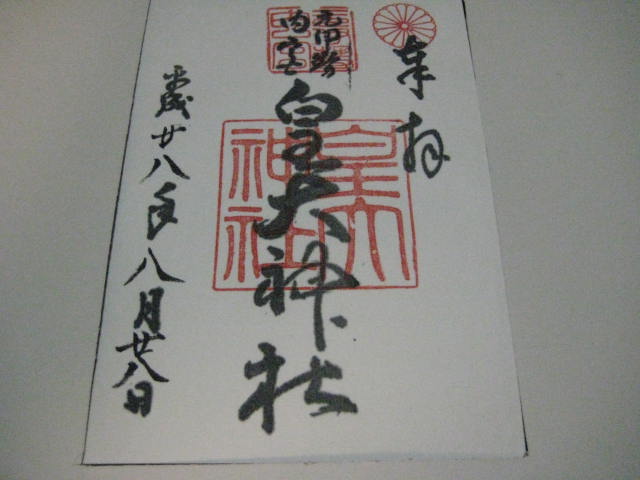 奉拝
元伊勢
内宮
皇大神社
皇大
神社
平成廿八年八月廿八日